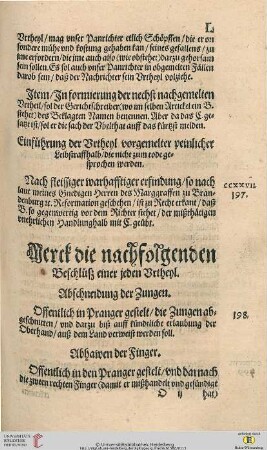 L
Vrtheyl / mag vnser Panrichter etlich Schöpffen / die er on
sondere mühe vnd kostung gehaben kan / seines gefallens / zu
jme erfordern / die jme auch also (wie obstehet) darzu gehorsam
sein sollen. Es sol auch vnser Panrichter in obgemelten Fällen
darob sein / daß der Nachrichter sein Vrtheyl volziehe.
Item / In formierung der nechst nachgemelten
Vrtheil / sol der Gerichtschreiber / wo im selben Artickel ein B.
stehet / des Beklagten Namen benennen. Aber da das C ge-
setzt ist / sol er die sach der Vbelthat auff das kürtzst melden.
Einführung der Vrtheyl vorgemelter peinlicher
Leibstraffhalb / die nicht zum tode ge-
sprochen werden.
Nach fleissiger warhafftiger erfindung / so nach
laut meines Gnedigen Herren des Marggraffen zu Bran-
denburg ꝛc. Reformation geschehen / ist zu Recht erkant / daß
B. so gegenwertig vor dem Richter stehet / der mißthätigen
vnehrlichen Handlung halb mit C. geübt.
CCXXVII
197.
Merck die nachfolgenden
Beschlüß einer jeden Vrtheyl.
Abschneidung der Zungen.
Offentlich in Pranger gestelt / die Zungen ab-
geschnitten / vnd darzu biß auff kündtliche erlaubung der
Oberhand / auß dem Land verweist werden soll.
198.
Abhawen der Finger.
Offentlich in den Pranger gestelt / vnd darnach
die zwen rechten Finger (damit er mißhandelt vnd gesündigt
O ij
hat)
UNIVERSITÄTS-
BIBLIOTHEK
HEIDELBERG
© Universitätsbibliothek Heidelberg